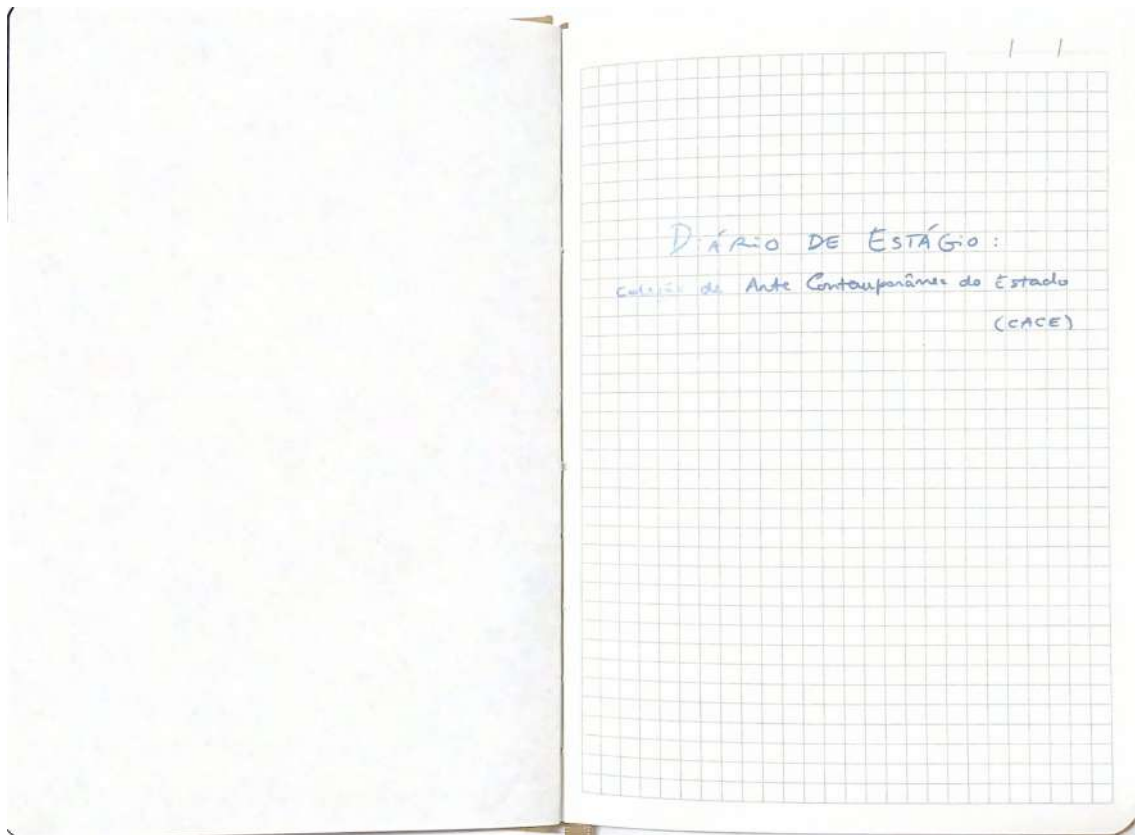 DIÁRIO DE ESTÁGIO:
Coleção de Arte Contemporânea do Estado
(CACE)